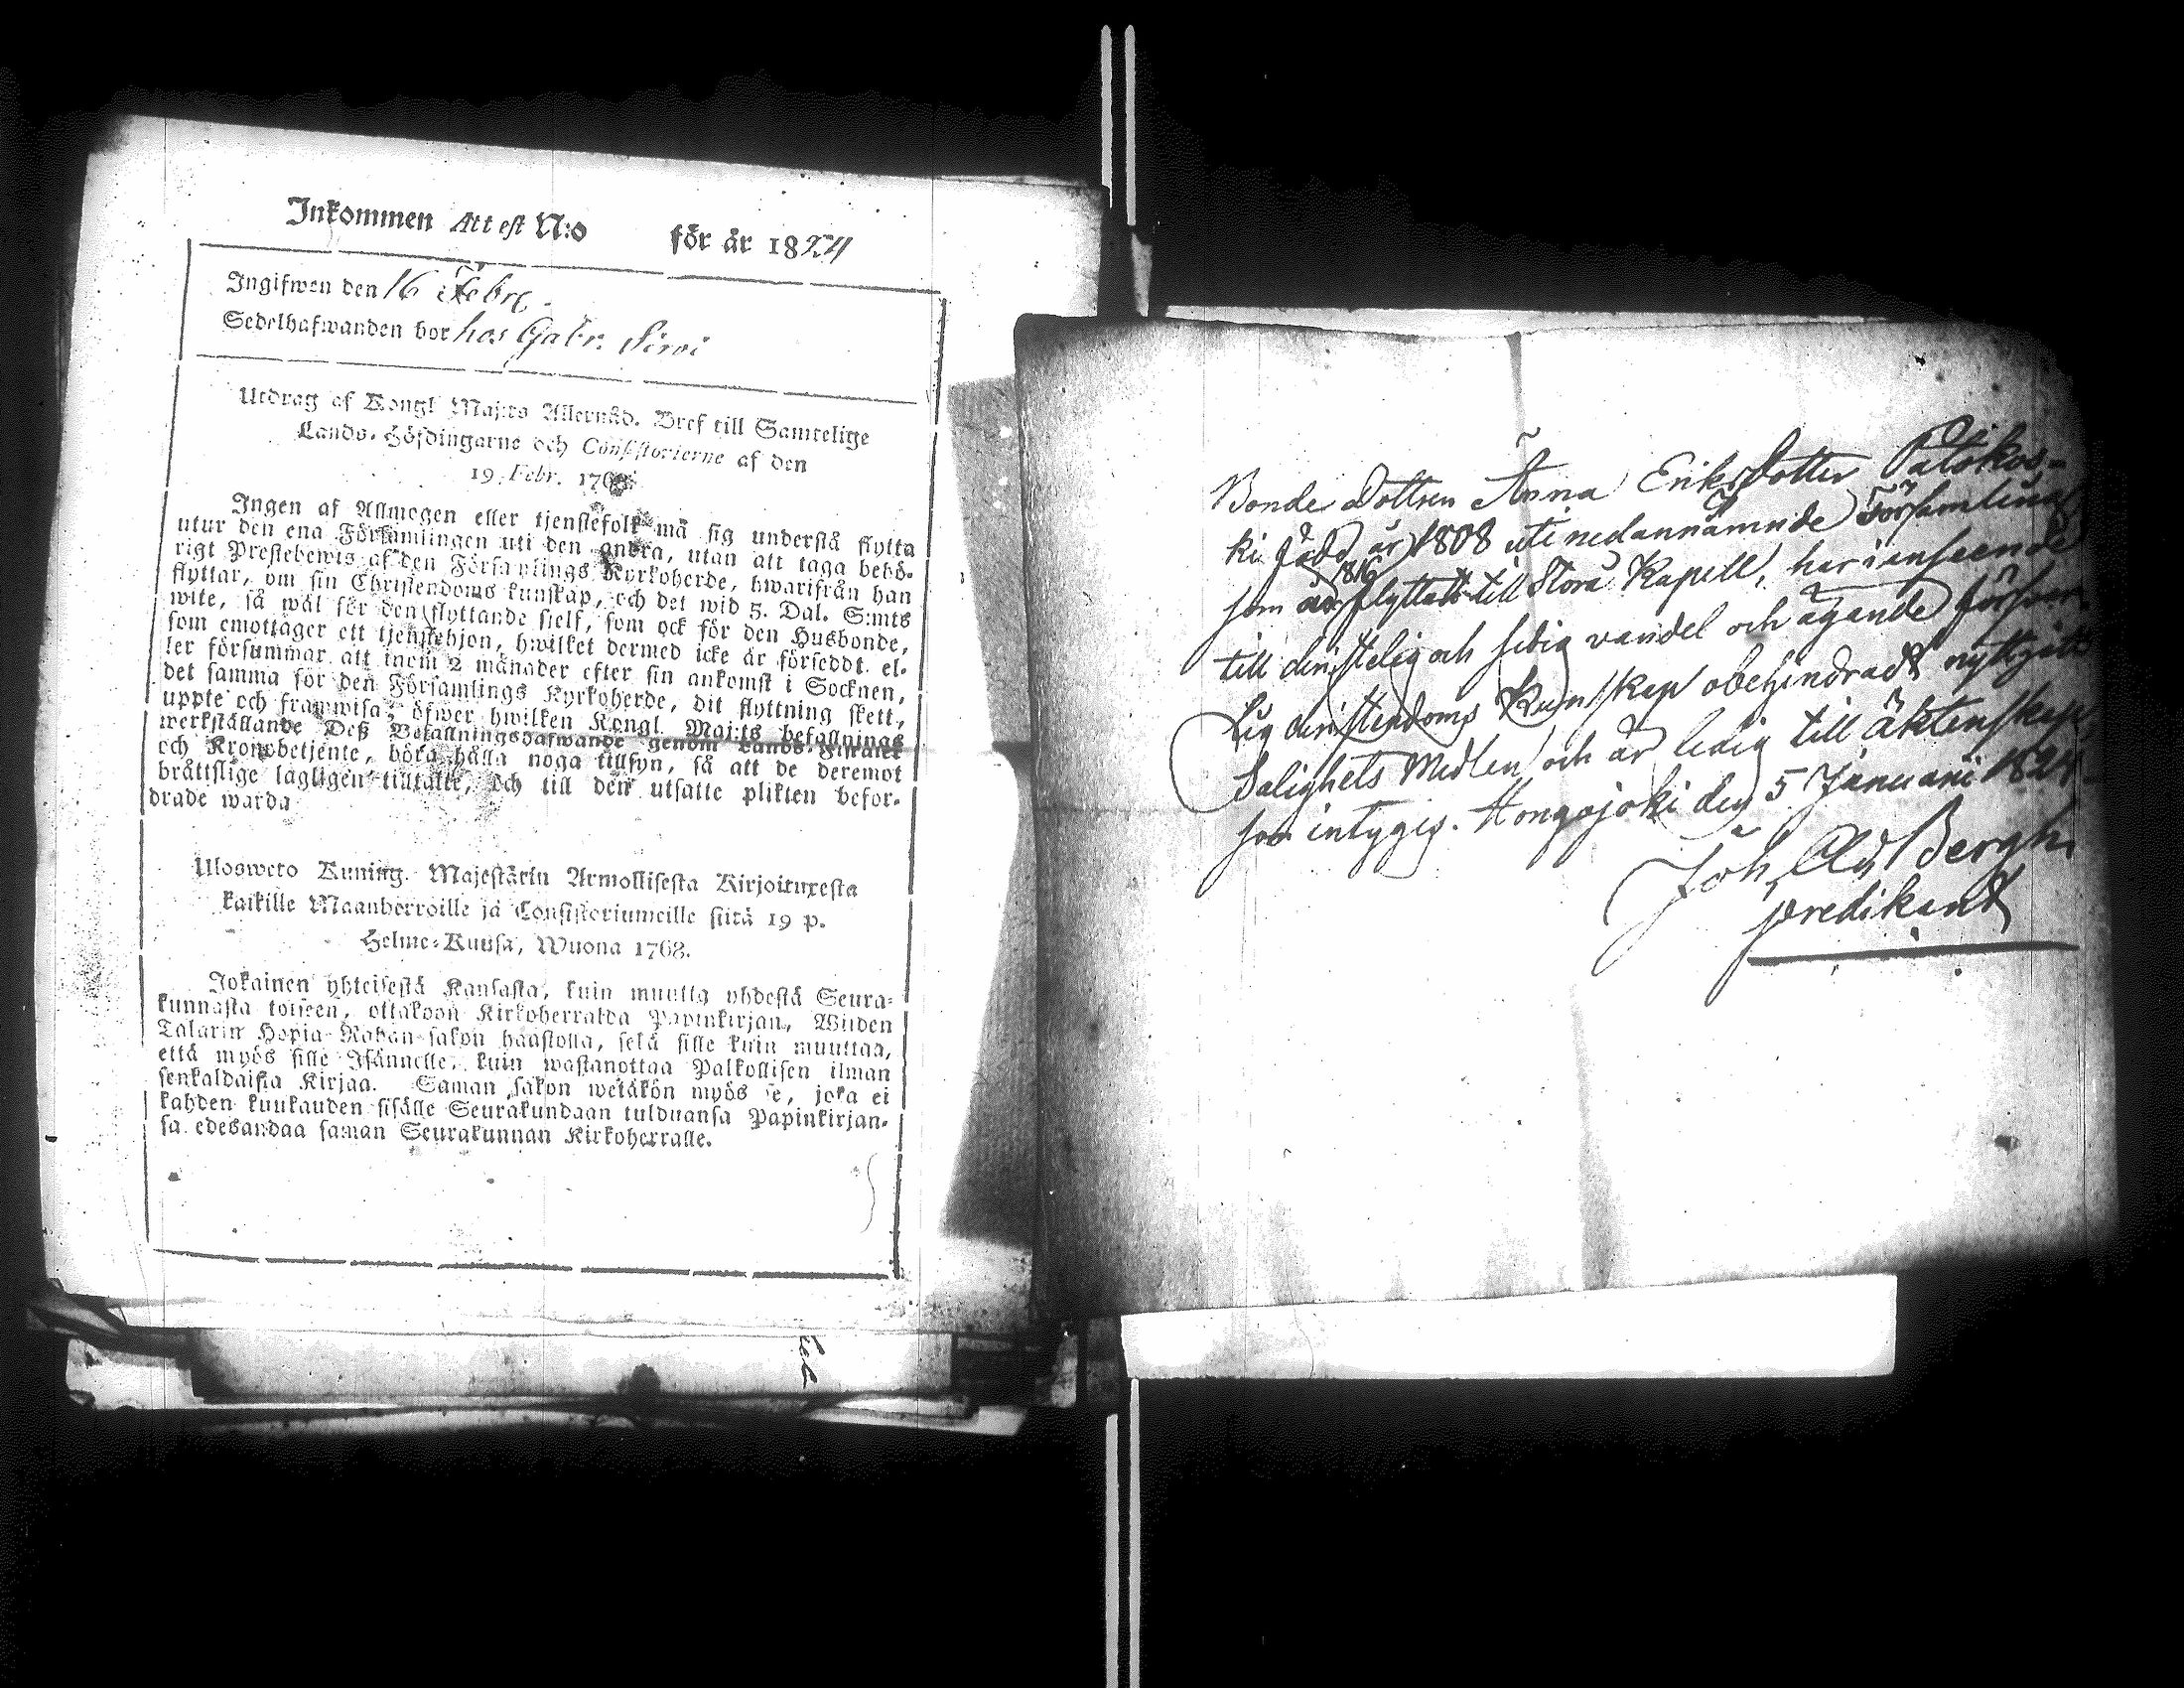 Inkommen Attest N:o för år 1824
Ingifwen den 16 Febr.
Sedelhafwanden bor hos Gabr. Sirvi
Utdrag af Kongl Maj:ts Allernåd. Bref till Samtelige
Lands-Höfdingarne och Consistorierne af den
19. Febr. 1768.
Ingen af Allmogen eller tjenstefolk må sig understå flytta
utur den ena Församlingen uti den andra, utan att taga behö-
rigt Prestebewis af den Församlings Kyrkoherde, hwarifrån han
flyttar, om sin Christendoms kunskap, och det wid 5. Dal. S:mts
wite, så wäl för den flyttande sielf, som ock för den Husbonde,
som emottager ett tjenstehjon, hwilket dermed icke är försedt el-
ler försummar att inom 2 månader efter sin ankomst i Socknen,
det samma för den Församlings Kyrkoherde, dit flyttning skett,
uppte och framwisa; öfwer hwilken Kongl. Maj:ts befallnings
werkställande Deß Befallningshafwande genom Lands-Fiscaler
och Kronobetjente, böra hålla noga tillsyn, så att de deremot
bråttslige lagligen tilltalte, och till den utsatte plikten befor-
drade warda
Ulosweto Kuning. Majestätin Armollisesta Kirjoituxesta
kaikille Maanherroille ja Consistoriumeille siitä 19 p.
Helme-Kuusa, Wuona 1768.
Jokainen yhteisestä Kansasta, kuin muutta yhdestä Seura-
kunnasta toiseen, ottakoon Kirkoherralda Papinkirjan, Wiiden
Talarin Hopia-Rahan sakon haastolla, sekä sille kuin muuttaa,
että myös sille Isännelle, kuin wastanottaa Palkollisen ilman
senkaldaista Kirjaa. Saman sakon wetäkön myös se, joka ei
kahden kuukauden sisälle Seurakundaan tulduansa Papinkirjan-
sa edesandaa saman Seurakunnan Kirkoherralle.
Bonde Dottren Anna Eriksdotter Pätökos-
ki född år 1808 uti nedannämnde Församling
1816
som är flyttat till Storå Kapell, har i anseende
till christelig och sedig vandel och ägande försvar
lig christendoms Kunskap obehindradt nyttjat
Salighets Medlen och är ledig till äktenskap
som intygis. Hongojoki den 5 Januarii 1824
Joh. Ad. Bergh
predikant